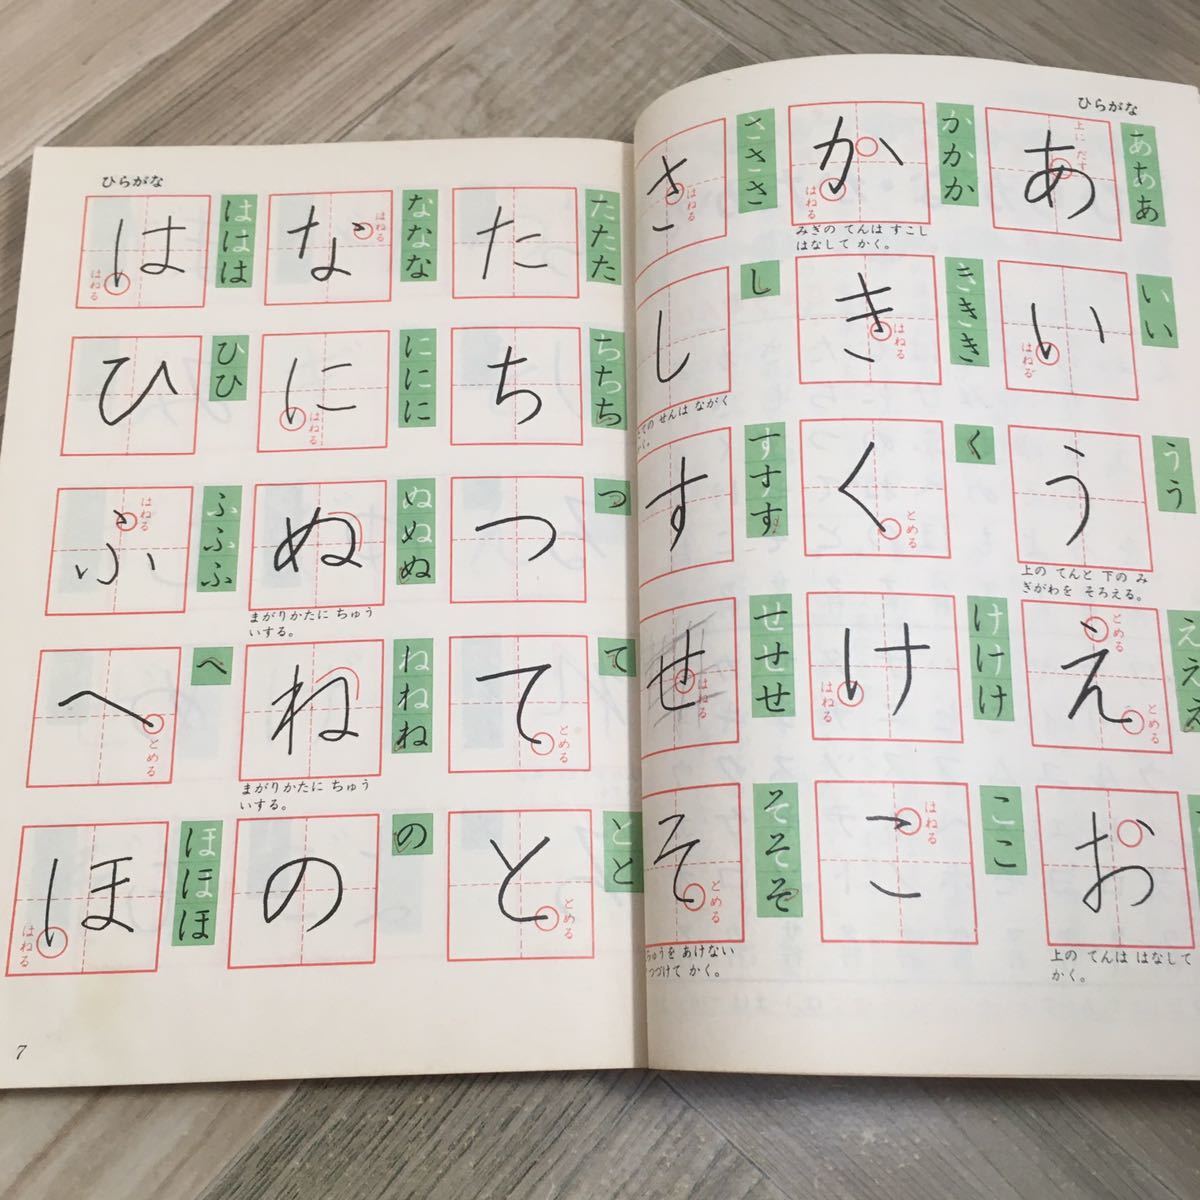 ひらがな
あ
あああ
上に だす
い
いい
はねる
う
うう
上の てんと 下の み
ぎがわを そろえる。
え
えええ
とめる
とめる
お
上の てんは はなして
かく。
か
かかか
はねる
みぎの てんは すこし
はなして かく。
き
ききき
はねる
く
く
とめる
け
けけけ
はねる
こ
ここ
はねる
さ
さささ
はねる
し
し
せんは ながく
かく。
す
すすす
せ
せせせ
はねる
そ
そそそ
とめる
あけない
つづけて かく。
ひらがな
た
たたた
ち
ちちち
つ
つ
て
て
とめる
と
とと
とめる
な
ななな
はねる
に
ににに
はねる
ぬ
ぬぬぬ
まがりかたに ちゅう
いする。
ね
ねねね
まがりかたに ちゅう
いする。
の
の
は
ははは
はねる
ひ
ひひ
ふ
ふふふ
はねる
へ
へ
とめる
ほ
ほほほ
はねる
7